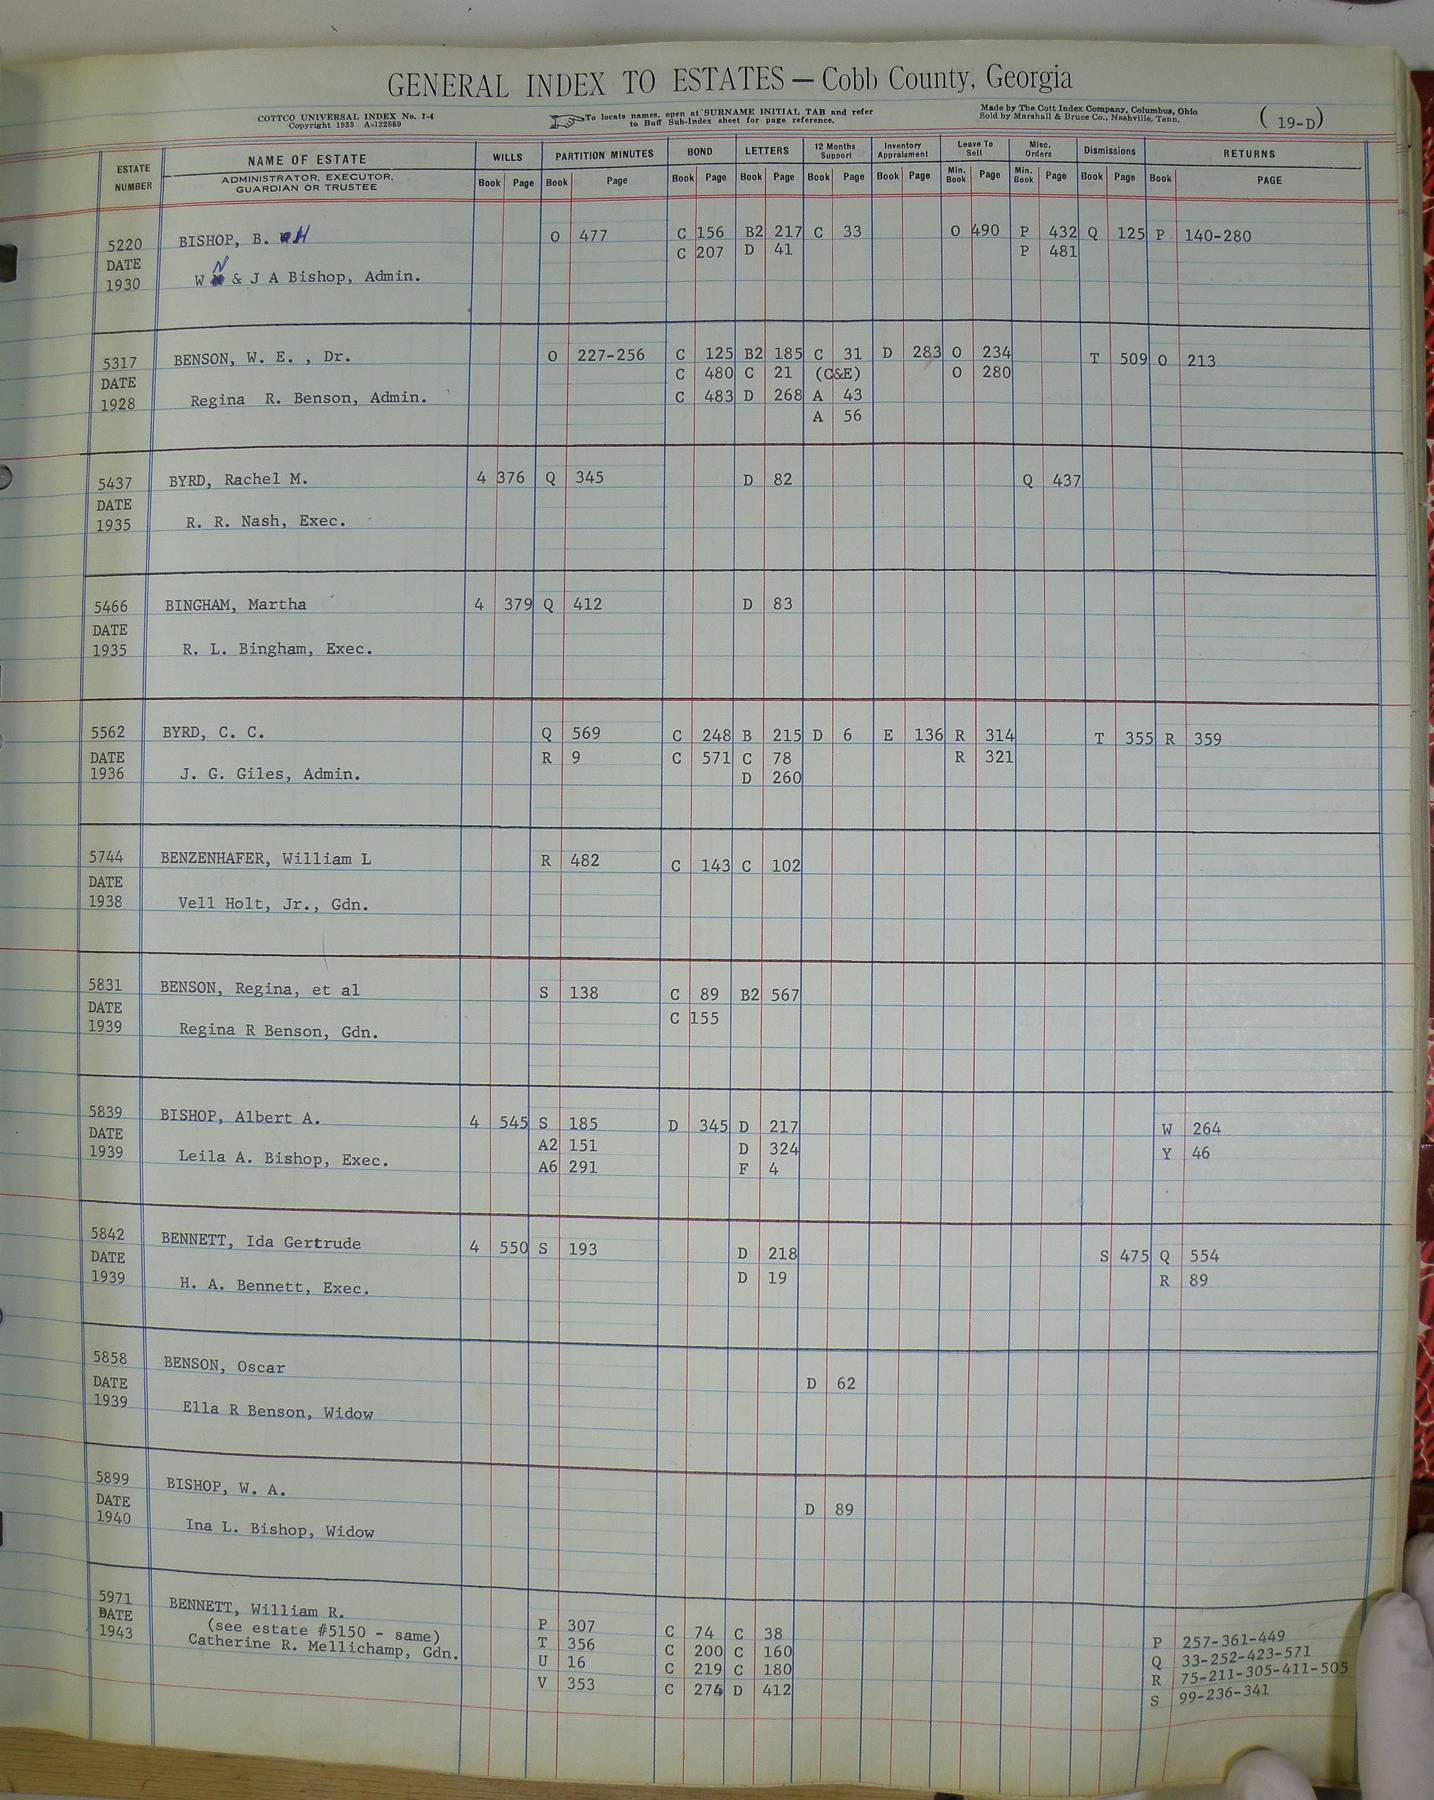 GENERAL INDEX TO ESTATES — Cobb County, Georgia
COTTCO UNIVERSAL INDEX No. 1-4
Copyright 1933 A-122559
To locate names, open at SURNAME INITIAL TAB and refer
to Buff Sub-Index sheet for page reference.
Made by The Cott Index Company, Columbus, Ohio
Sold by Marshall & Bruce Co., Nashville, Tenn.
( 19-D)
ESTATE NUMBER NAME OF ESTATE WILLS PARTITION MINUTES BOND LETTERS 12 Months Support Inventory Appraisment Leave To Sell Misc. Orders Dismissions RETURNS
ADMINISTRATOR, EXECUTOR, GUARDIAN OR TRUSTEE Book Page Book Page Book Page Book Page Book Page Book Page Min. Book Page Min. Book Page Book Page Book PAGE
5220 BISHOP, B. H O 477 C 156 B2 217 C 33 O 490 P 432 Q 125 P 140-280
DATE C 207 D 41 P 481
1930 W N & J A Bishop, Admin.
5317 BENSON, W. E. , Dr. O 227-256 C 125 B2 185 C 31 D 283 O 234 T 509 O 213
DATE C 480 C 21 (C&E) O 280
1928 Regina R. Benson, Admin. C 483 D 268 A 43
A 56
5437 BYRD, Rachel M. 4 376 Q 345 D 82 Q 437
DATE
1935 R. R. Nash, Exec.
5466 BINGHAM, Martha 4 379 Q 412 D 83
DATE
1935 R. L. Bingham, Exec.
5562 BYRD, C. C. Q 569 C 248 B 215 D 6 E 136 R 314 T 355 R 359
DATE R 9 C 571 C 78 R 321
1936 J. G. Giles, Admin. D 260
5744 BENZENHAFER, William L R 482 C 143 C 102
DATE
1938 Vell Holt, Jr., Gdn.
5831 BENSON, Regina, et al S 138 C 89 B2 567
DATE C 155
1939 Regina R Benson, Gdn.
5839 BISHOP, Albert A. 4 545 S 185 D 345 D 217 W 264
DATE A2 151 D 324 Y 46
1939 Leila A. Bishop, Exec. A6 291 F 4
5842 BENNETT, Ida Gertrude 4 550 S 193 D 218 S 475 Q 554
DATE D 19 R 89
1939 H. A. Bennett, Exec.
5858 BENSON, Oscar
DATE D 62
1939 Ella R Benson, Widow
5899 BISHOP, W. A.
DATE D 89
1940 Ina L. Bishop, Widow
5971 BENNETT, William R. P 307 C 74 C 38 P 257-361-449
DATE (see estate #5150 - same) T 356 C 200 C 160 Q 33-252-423-571
1943 Catherine R. Mellichamp, Gdn. U 16 C 219 C 180 R 75-211-305-411-505
V 353 C 274 D 412 S 99-236-341